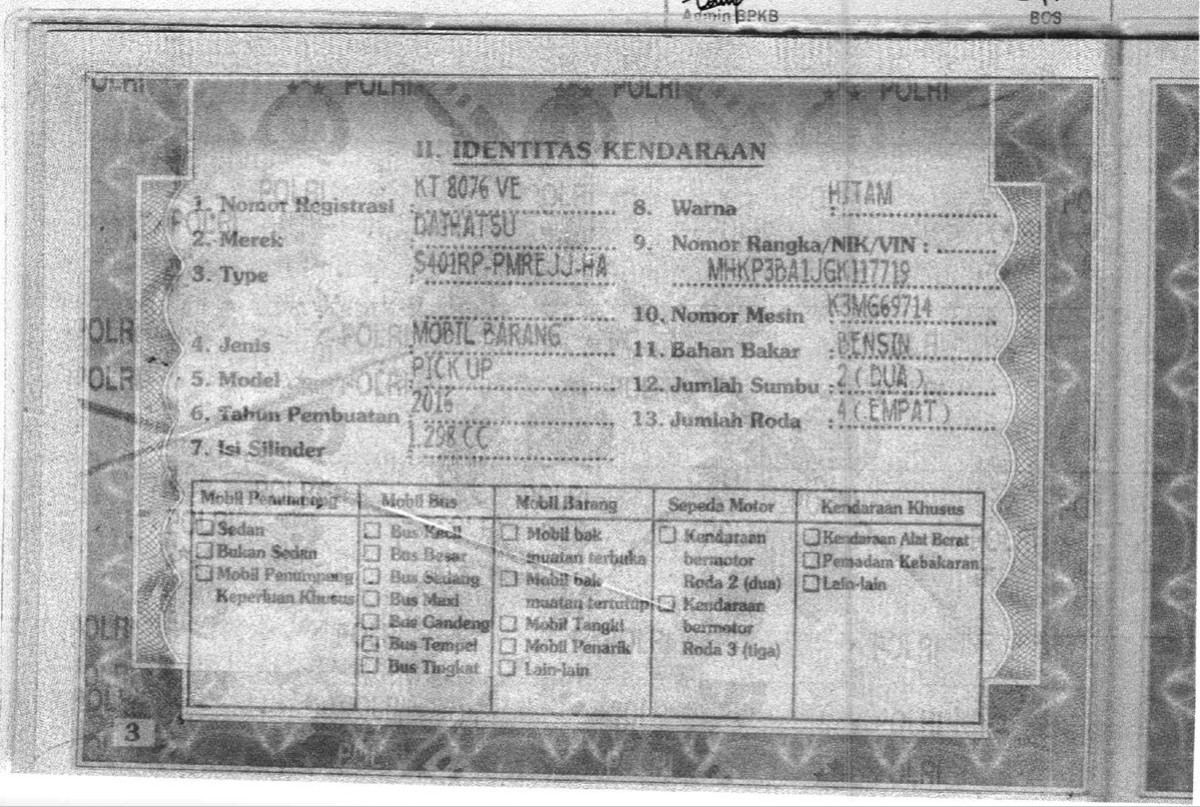 Admin BPKB
BOS
POLRI POLRI POLRI POLRI
II. IDENTITAS KENDARAAN
1. Nomor Registrasi : KT 8076 VE
2. Merek : DAIHATSU
3. Type : S401RP-PMREJJ-HA
4. Jenis : MOBIL BARANG
5. Model : PICK UP
6. Tahun Pembuatan : 2016
7. Isi Silinder : 1.298 CC
8. Warna : HITAM
9. Nomor Rangka/NIK/VIN :
MHKP3BA1JGK117719
10. Nomor Mesin : K3MG69714
11. Bahan Bakar : BENSIN
12. Jumlah Sumbu : 2 ( DUA )
13. Jumlah Roda : 4 ( EMPAT )
Mobil Penumpang
Sedan
Bukan Sedan
Mobil Penumpang
Keperluan Khusus
Mobil Bus
Bus Kecil
Bus Besar
Bus Sedang
Bus Maxi
Bus Gandeng
Bus Tempel
Bus Tingkat
Mobil Barang
Mobil bak
muatan terbuka
Mobil bak
muatan tertutup
Mobil Tangki
Mobil Penarik
Lain-lain
Sepeda Motor
Kendaraan
bermotor
Roda 2 (dua)
Kendaraan
bermotor
Roda 3 (tiga)
Kendaraan Khusus
Kendaraan Alat Berat
Pemadam Kebakaran
Lain-lain
3